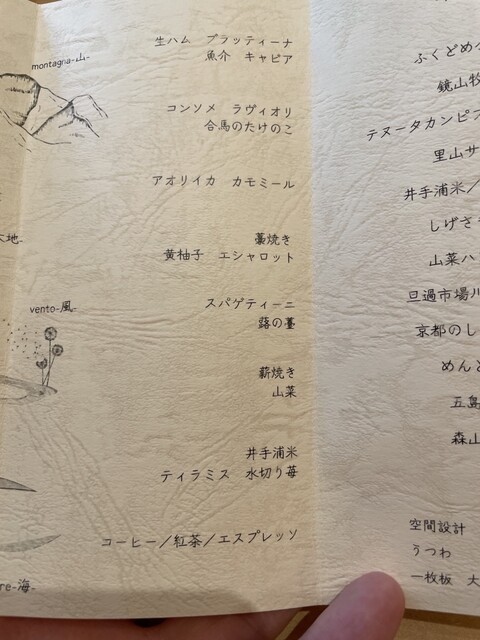 montagna-山-
大地-
vento-風-
re-海-
生ハム ブラッティーナ
魚介 キャビア
コンソメ ラヴィオリ
合馬のたけのこ
アオリイカ カモミール
藁焼き
黄柚子 エシャロット
スパゲティーニ
蕗の薹
薪焼き
山菜
井手浦米
ティラミス 水切り苺
コーヒー／紅茶／エスプレッソ
ふくどめ
鏡山牧
テヌータカンピ
里山サ
井手浦米／
しげさ
山菜ハ
旦過市場
京都のし
めんど
五島
森山
空間設計
うつわ
一枚板 大